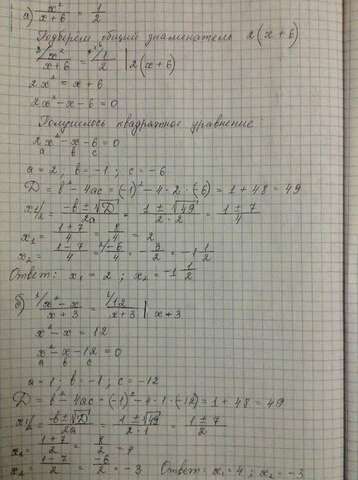 а) x²/(x+6) = 1/2
Подберем общий знаменатель 2(x+6)
²/ x²/(x+6) = ˣ⁺⁶/ 1/2 | 2(x+6)
2x² = x+6
2x² - x - 6 = 0
Получилось квадратное уравнение:
2x² - x - 6 = 0
a b c
a = 2, b = -1; c = -6
D = b² - 4ac = (-1)² - 4·2·(-6) = 1 + 48 = 49
x1/2 = (-b ± √D)/2a = (1 ± √49)/(2·2) = (1 ± 7)/4
x₁ = (1+7)/4 = 8/4 = 2
x₂ = (1-7)/4 = -6/4 = -3/2 = -1 1/2
Ответ: x₁ = 2; x₂ = -1 1/2
б) ¹/ (x² - x)/(x+3) = ¹/ 12/(x+3) | x+3
x² - x = 12
x² - x - 12 = 0
a b c
a = 1; b = -1, c = -12
D = b² - 4ac = (-1)² - 4·1·(-12) = 1 + 48 = 49
x1/2 = (-b ± √D)/2a = (1 ± √49)/(2·1) = (1 ± 7)/2
x₁ = (1+7)/2 = 8/2 = 4
x₂ = (1-7)/2 = -6/2 = -3 Ответ: x₁ = 4; x₂ = -3